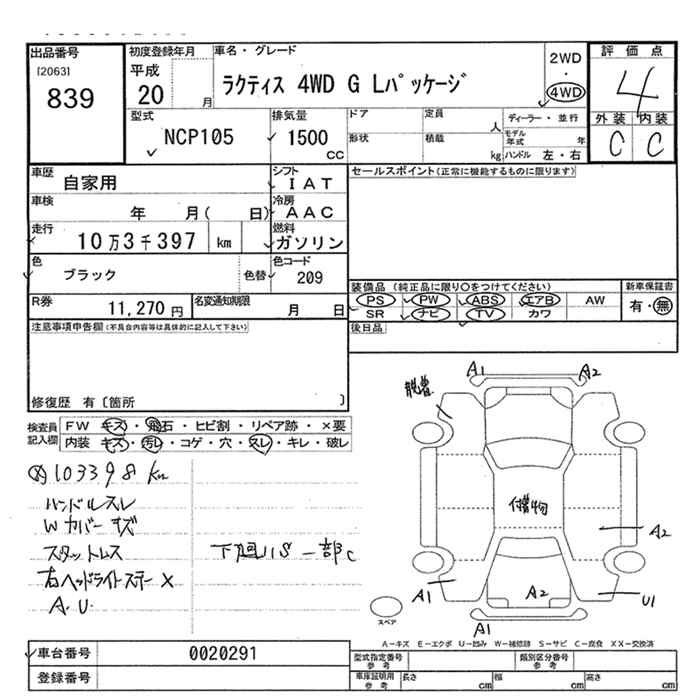 出品番号
[2063]
839
初度登録年月
平成
20 月
車名・グレード
ラクティス 4WD G Lパッケージ
2WD
・
4WD
評価点
4
外装 内装
C C
型式
NCP105
排気量
1500
CC
ドア
定員
人
ディーラー・並行
形状
積載
kg
モデル年式 年
ハンドル 左・右
車歴
自家用
シフト
IAT
車検
年 月( 日)
冷房
AAC
走行
10万3千397 km
燃料
ガソリン
色
ブラック
色替
色コード
209
R券
11,270 円
名変通知期限
月 日
セールスポイント(正常に機能するものに限ります)
装備品(純正品に限り○をつけてください)
新車保証書
PS PW ABS エアB AW
SR ナビ TV カワ
有・無
後日品
注意事項申告欄(不具合内容等は具体的に記入して下さい)
修復歴 有〔箇所 〕
検査員記入欄
FW キズ・飛石・ヒビ割・リペア跡・×要
内装 キズ・汚レ・コゲ・穴・スレ・キレ・破レ
103398 km
ハンドルスレ
Wカバーキズ
スタットレス
右ヘッドライトステー×
A.U.
下廻りS一部C
A1
A2
付着物
A2
A1
A2
U1
A1
スペア
A-キズ E-エクボ U-凹み W-補修跡 S-サビ C-腐食 XX-交換済
車台番号
0020291
登録番号
型式指定番号
参考
類別区分番号
参考
車庫証明用
参考
長さ cm
幅 cm
高さ cm